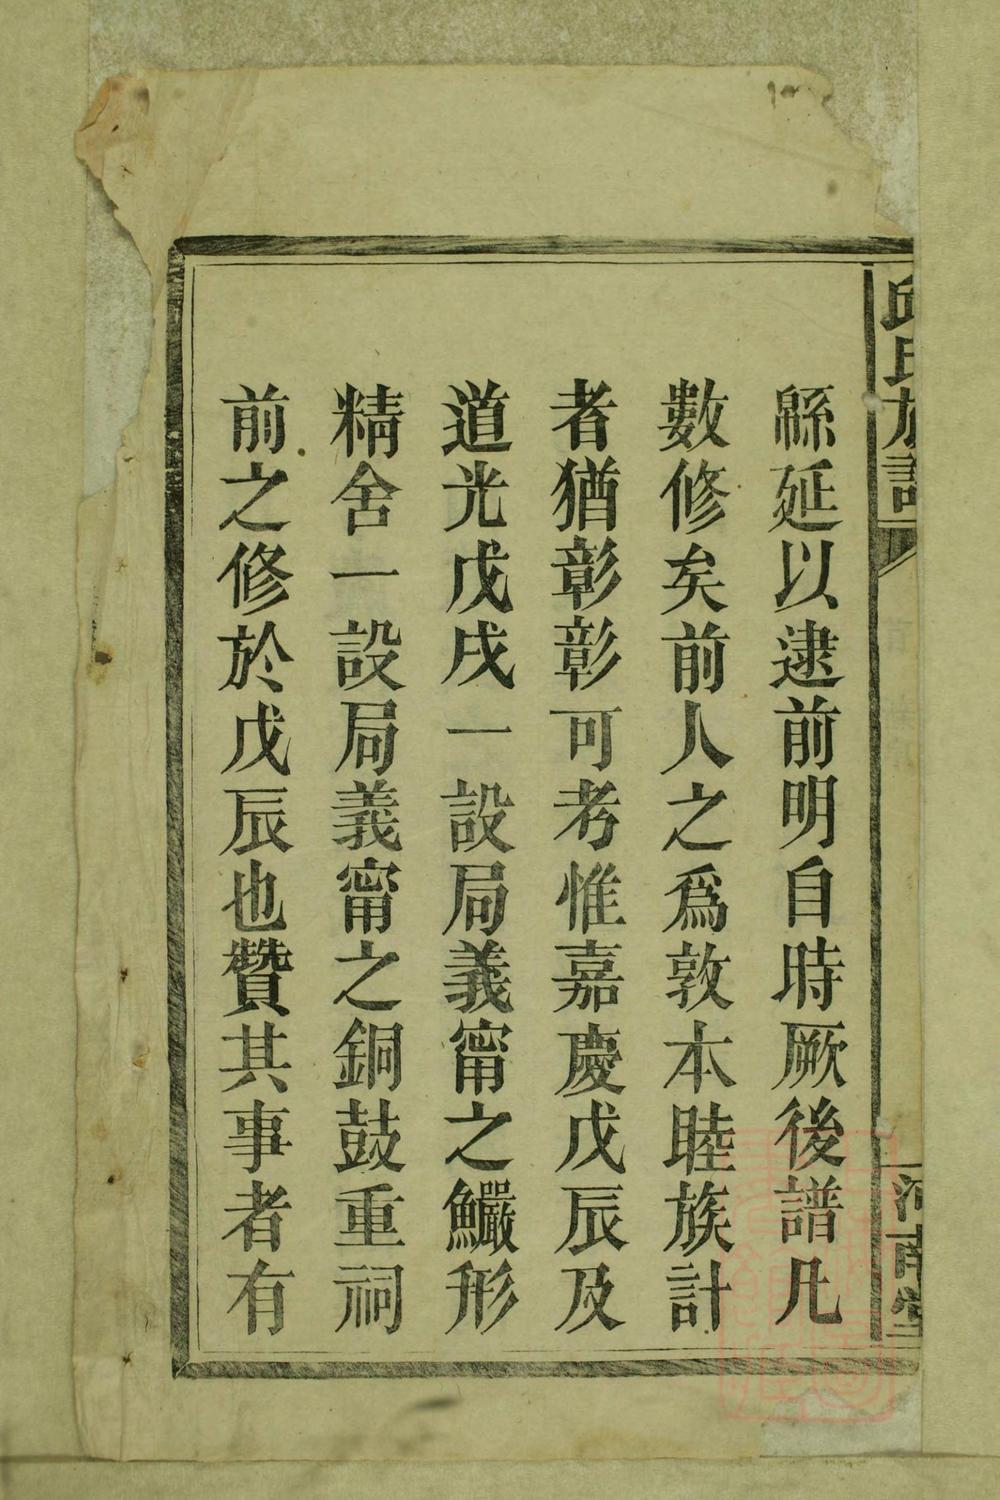 邱氏族譜
河南堂
緜延以逮前明自時厥後譜凡
數修矣前人之爲敦本睦族計
者猶彰彰可考惟嘉慶戊辰及
道光戊戌一設局義甯之鱲形
精舍一設局義甯之銅鼓重祠
前之修於戊辰也贊其事者有